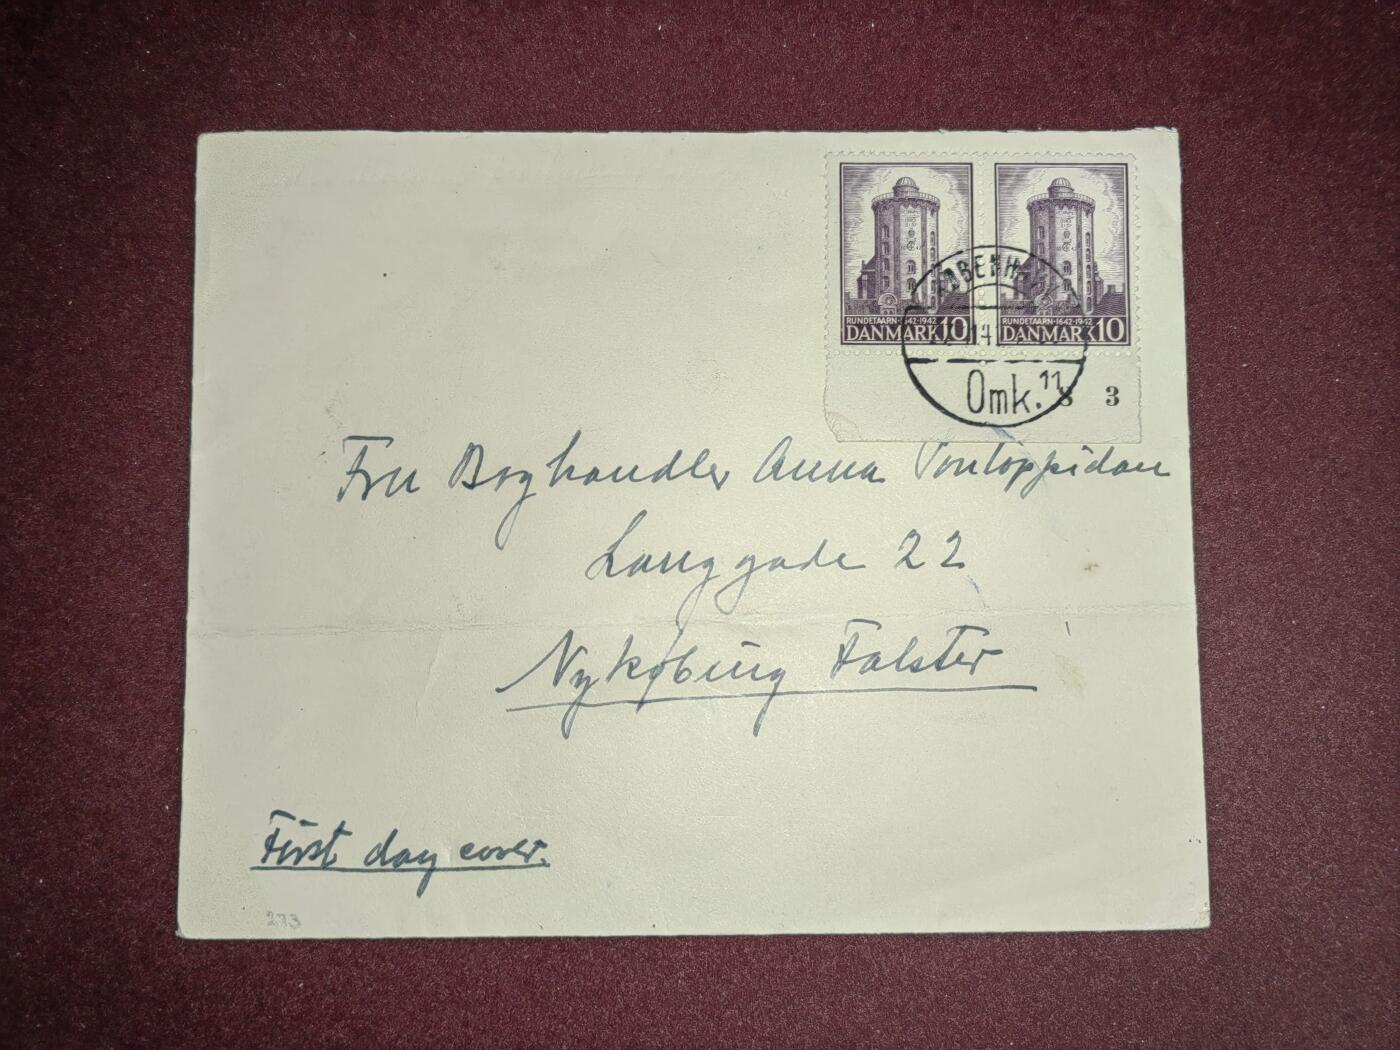 RUNDETAARN·1642-1942
DANMARK 10
RUNDETAARN·1642-1942
DANMARK 10
Omk. 11
8 3
Fru Boghandler Anna Pontoppidan
Langgade 22
Nykøbing Falster
First day cover.
273